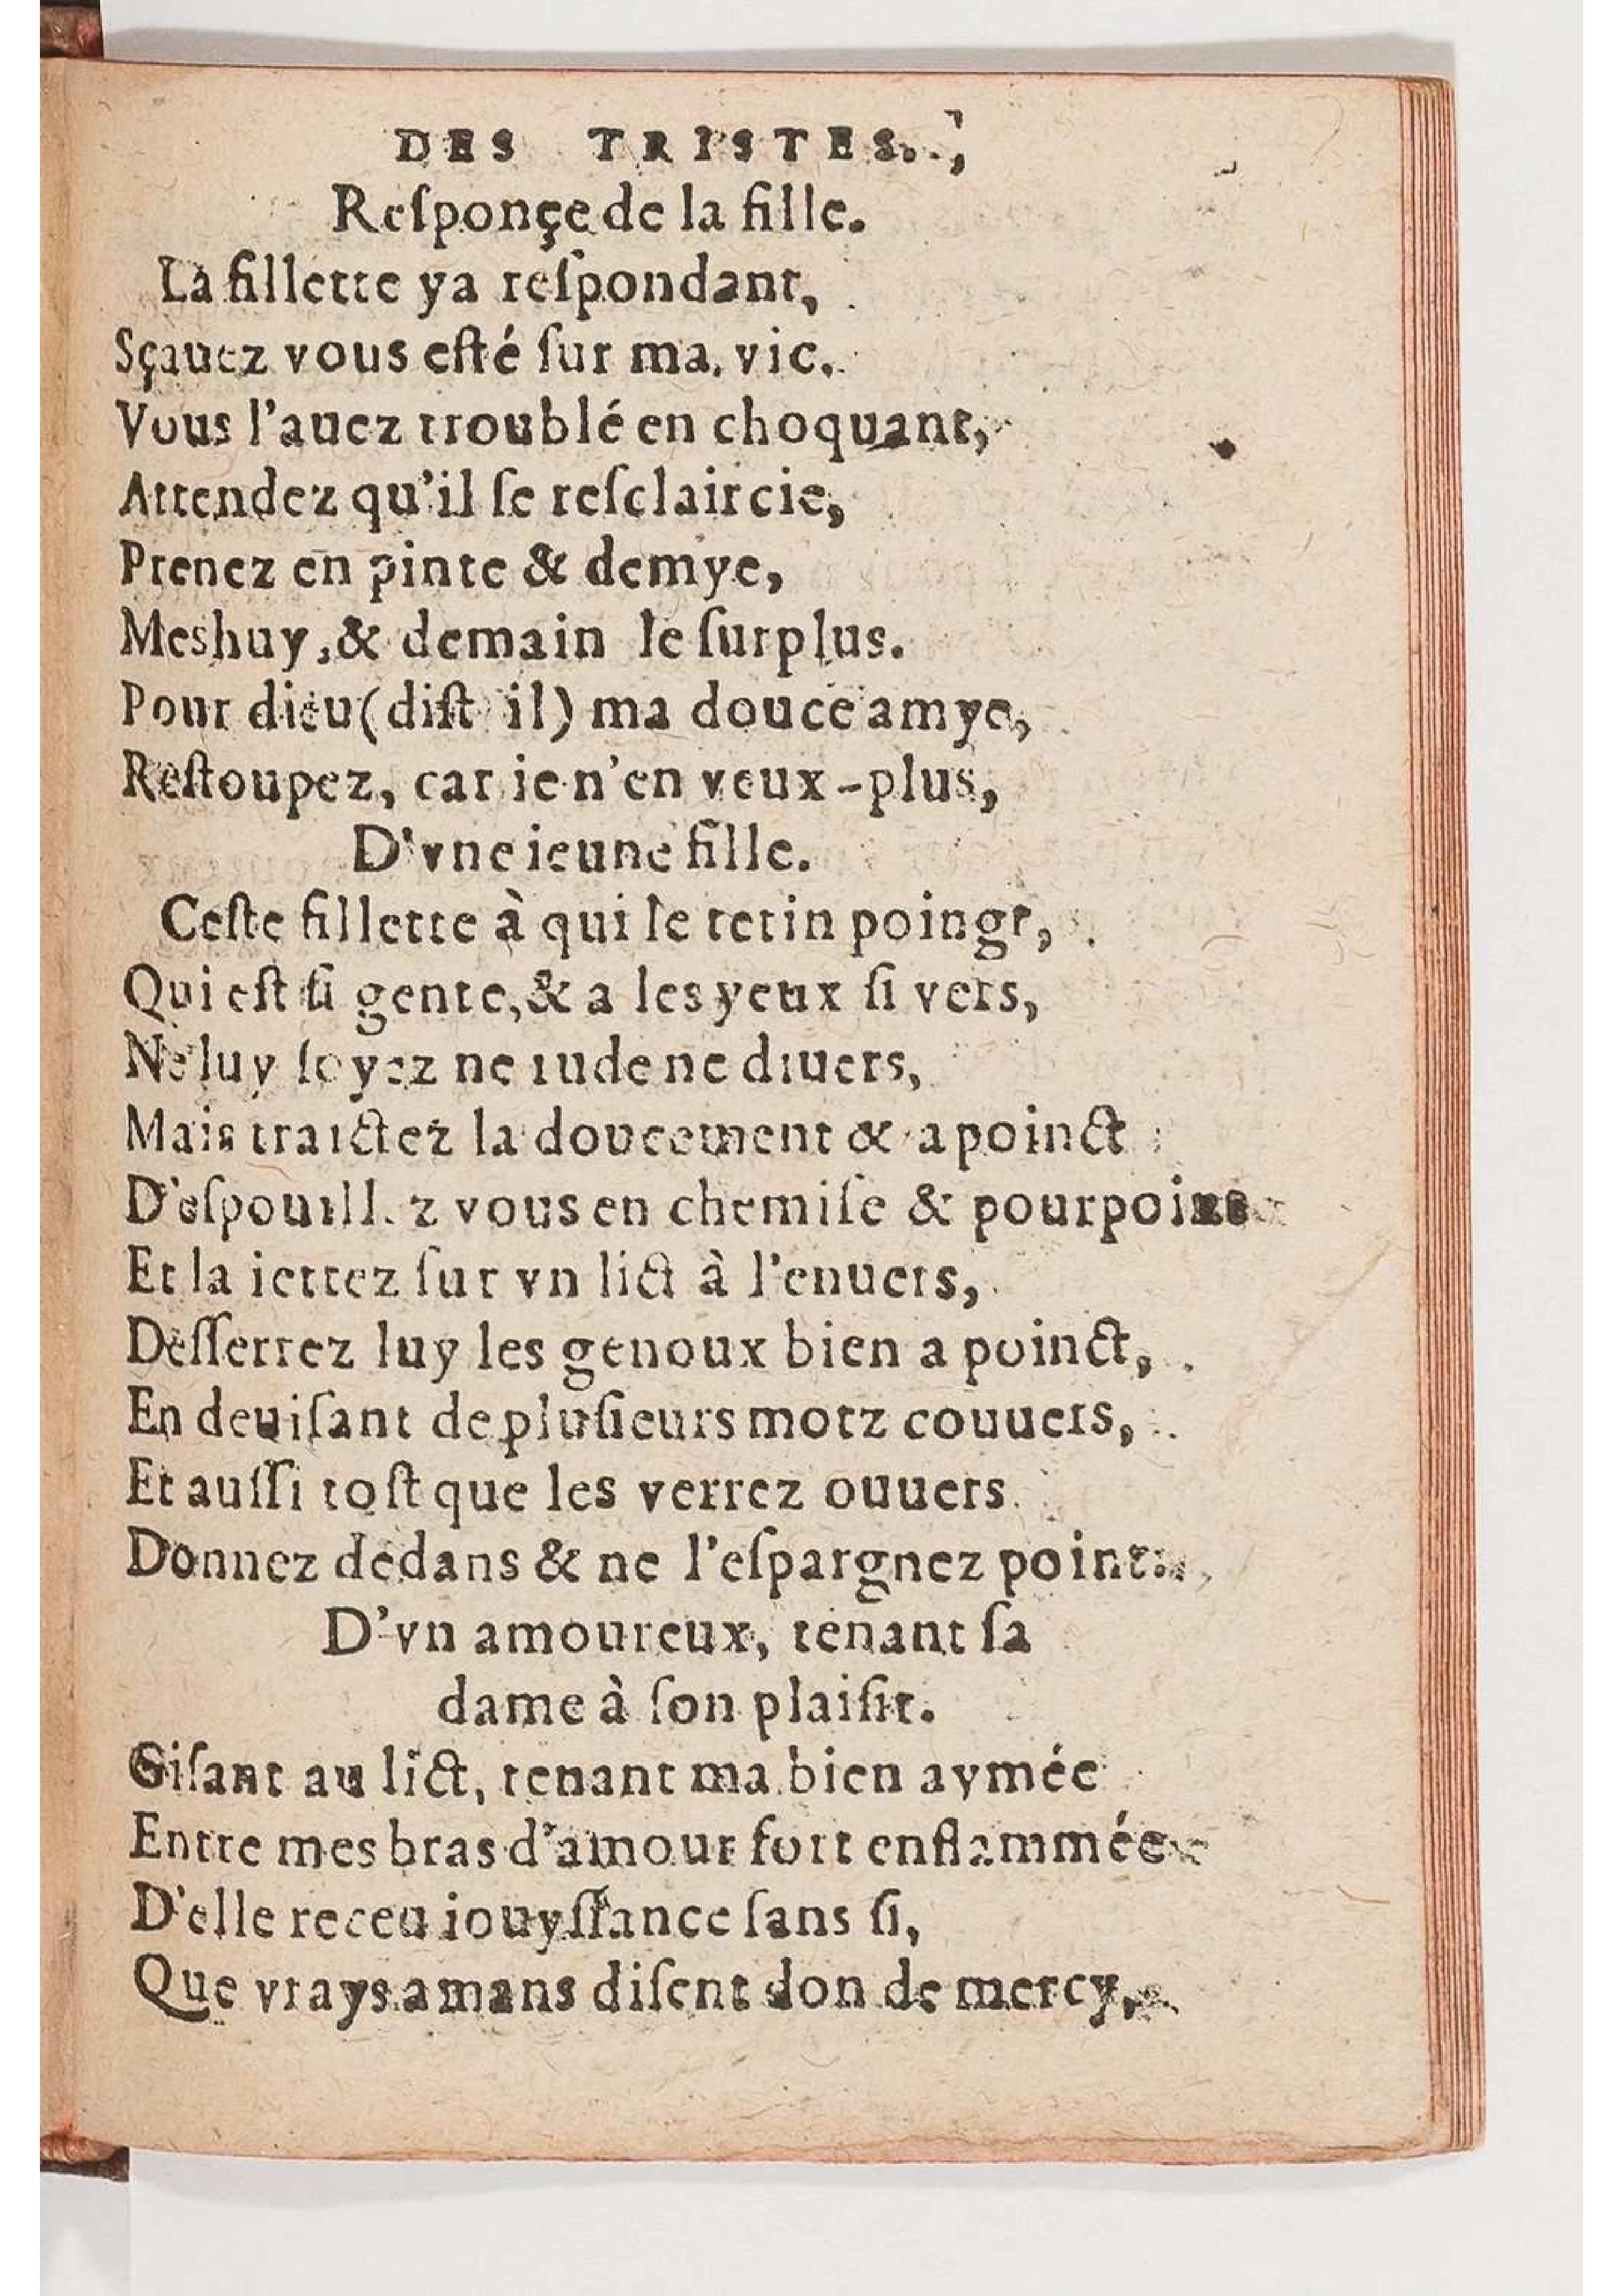 DES TRISTES.
Reſponçe de la fille.
La fillette ya reſpondant,
Sçauez vous eſté ſur ma. vie.
Vous l'auez troublé en choquant,
Attendez qu'il ſe reſclaircie,
Prenez en pinte & demye,
Meshuy,& demain le ſurplus.
Pour dieu (diſt il) ma douce amye,
Reſtoupez, car ie n'en veux-plus,
D'vne ieune fille.
Ceſte fillette à qui le tetin poingt,
Qui eſt ſi gente,& a les yeux ſi vers,
Ne luy ſoyez ne rude ne diuers,
Mais traictez la doucement & a poinct :
D'eſpouill. z vous en chemiſe & pourpoint
Et la iettez ſur vn lict à l'enuers,
Deſſerrez luy les genoux bien a poinct,
En deuiſant de pluſieurs motz couuers,
Et auſſi toſt que les verrez ouuers.
Donnez dedans & ne l'eſpargnez point.
D'vn amoureux, tenant ſa
dame à ſon plaiſir.
Giſant au lict, tenant ma bien aymée
Entre mes bras d'amour fort enflammée
D'elle receu iouyſſance ſans ſi,
Que vrays amans diſent don de mercy,